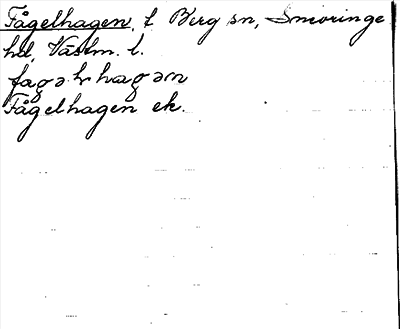 Fågelhagen, t Berg sn, Snevringe
hd, Västm. l.
fagəlhagən
Fågelhagen ek.